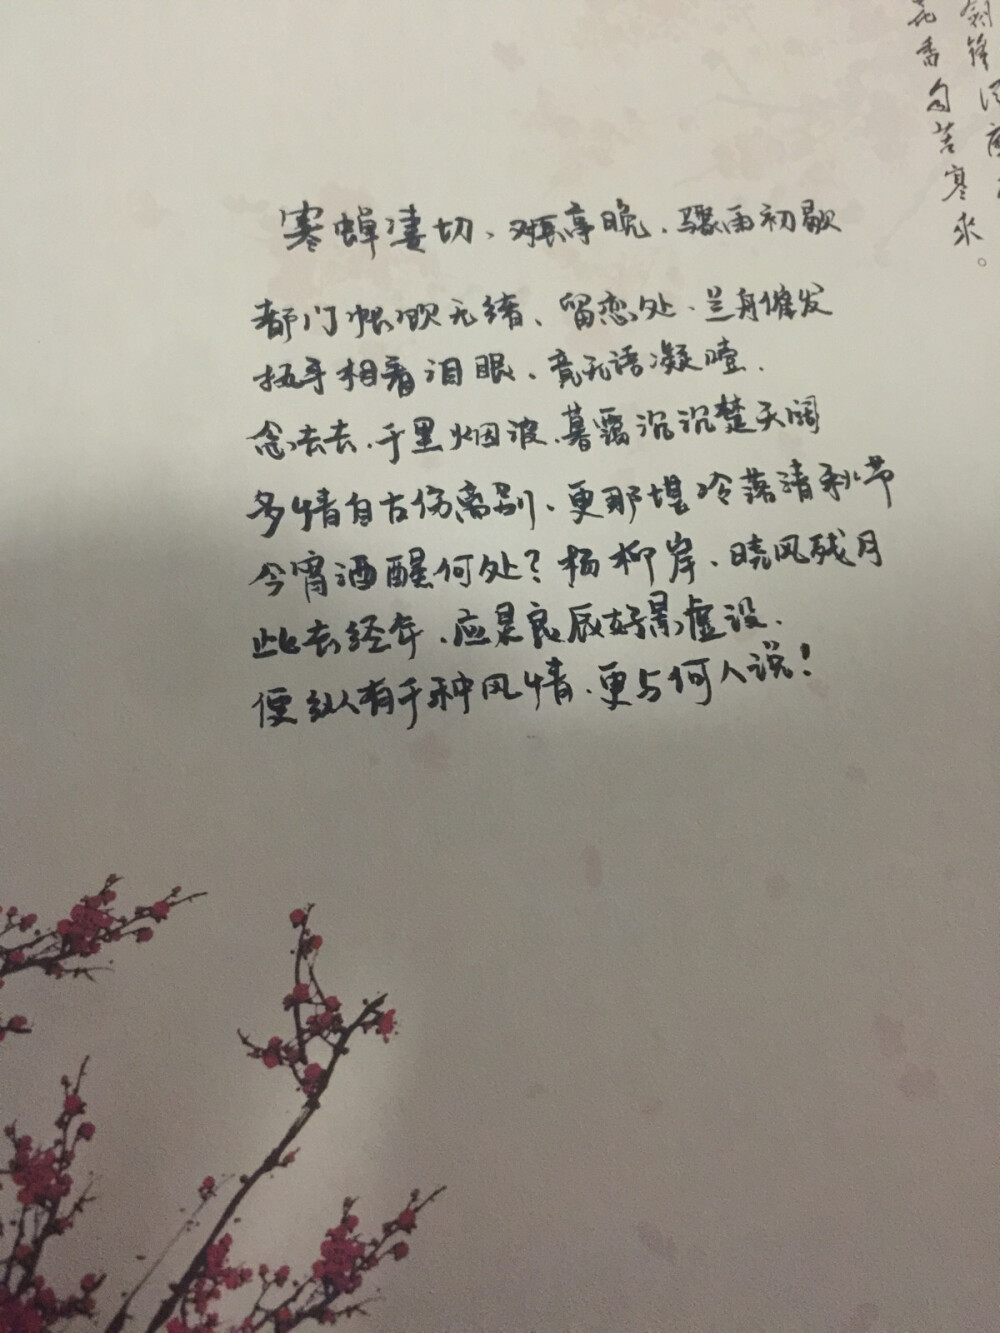 寒蝉凄切、对长亭晚、骤雨初歇
都门帐饮无绪、留恋处、兰舟催发
执手相看泪眼、竟无语凝噎.
念去去、千里烟波、暮霭沉沉楚天阔
多情自古伤离别、更那堪冷落清秋节
今宵酒醒何处？杨柳岸、晓风残月
此去经年、应是良辰好景虚设.
便纵有千种风情、更与何人说！
剑锋
花香自苦寒来。